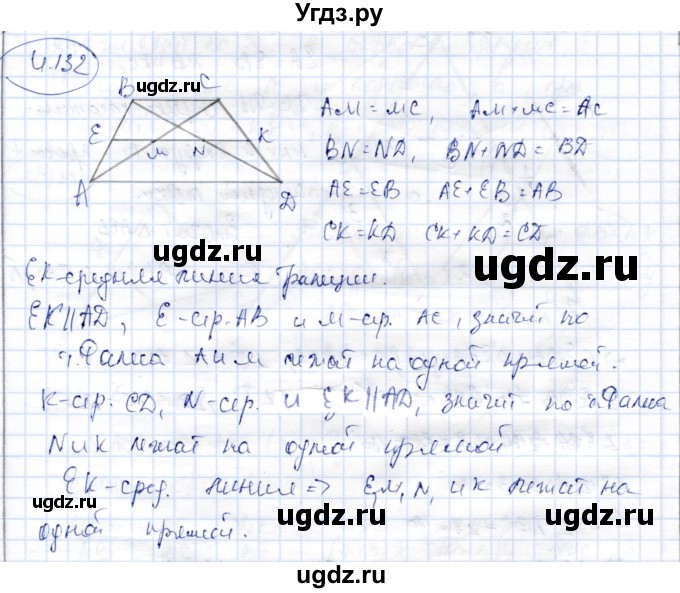 Угдз.ру
4.132
ugdz.ru
B C
AM = MC, AM+MC = AC
E K
M N
BN = ND, BN + ND = BD
A D
AE = EB AE + EB = AB
ugdz.ru
CK = KD CK + KD = CD
ugdz.ru
EK-средняя линия трапеции.
EK || AD, E-ср. AB и M-ср. AC, значит по
ugdz.ru
т. Фалеса A и M лежат на одной прямой.
K-ср. CD, N-ср. и EK || AD, значит по т. Фалеса
ugdz.ru
N и K лежат на одной прямой
ugdz.ru
EK-сред. линия => E, M, N, и K лежат на
ugdz.ru
одной прямой.
ugdz.ru
ugdz.ru